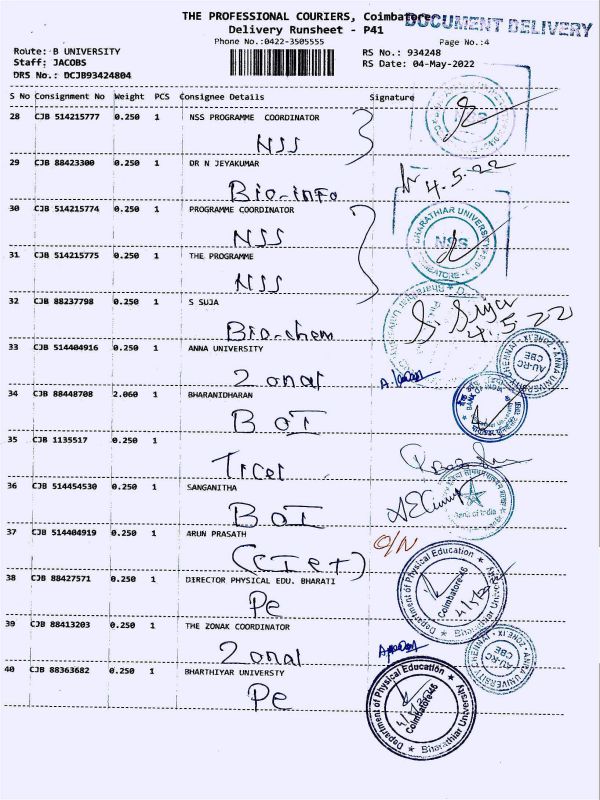 THE PROFESSIONAL COURIERS, Coimbatore
DOCUMENT DELIVERY
Delivery Runsheet - P41
Phone No.:0422-3505555
Page No.:4
Route: B UNIVERSITY
RS No.: 934248
Staff: JACOBS
RS Date: 04-May-2022
DRS No.: DCJB93424804
S No Consignment No Weight PCS Consignee Details Signature
28 CJB 514215777 0.250 1 NSS PROGRAMME COORDINATOR
NSS
NSS
29 CJB 88423300 0.250 1 DR N JEYAKUMAR
4.5.22
Bio-info
30 CJB 514215774 0.250 1 PROGRAMME COORDINATOR
BHARATHIAR UNIVERSITY
NSS
NSS
COIMBATORE
31 CJB 514215775 0.250 1 THE PROGRAMME
NSS
32 CJB 88237798 0.250 1 S SUJA
S. Suja
4.5.22
Bio-chem
33 CJB 514404916 0.250 1 ANNA UNIVERSITY
Zonal
ANNA UNIVERSITY CHENNAI ZONE-IX
AU-RC
CBE
34 CJB 88448708 2.060 1 BHARANIDHARAN
BOI
BANK OF INDIA
35 CJB 1135517 0.250 1
Ticel
36 CJB 514454530 0.250 1 SANGANITHA
BOI
Bank of India
37 CJB 514404919 0.250 1 ARUN PRASATH
O/N
(CIET)
38 CJB 88427571 0.250 1 DIRECTOR PHYSICAL EDU. BHARATI
Pe
Department of Physical Education
Coimbatore-46
Bharathiar University
39 CJB 88413203 0.250 1 THE ZONAK COORDINATOR
Zonal
ANNA UNIVERSITY CHENNAI ZONE-IX
AU-RC
CBE
40 CJB 88363682 0.250 1 BHARTHIYAR UNIVERSITY
Pe
Department of Physical Education
Coimbatore-46
Bharathiar University